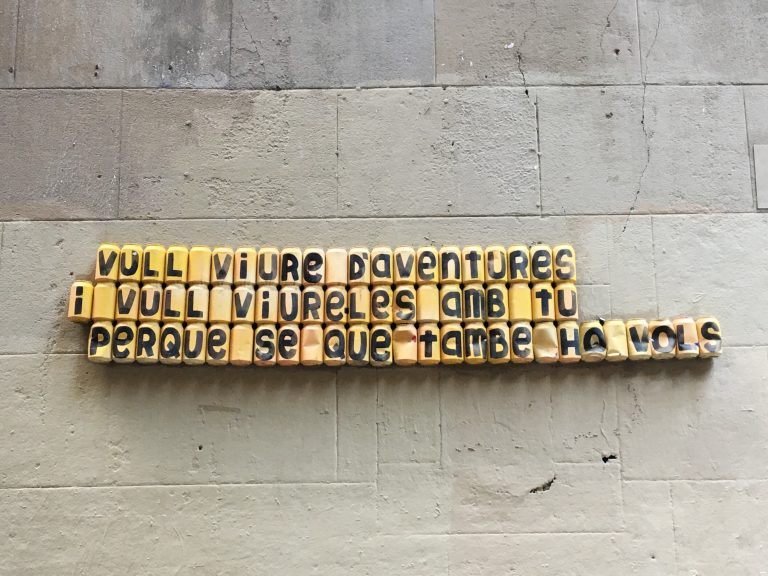 VULL VIURE D'AVENTURES
i VULL VIURE-LES AMB TU
PERQUE SE QUE tAMBE HO VOLS